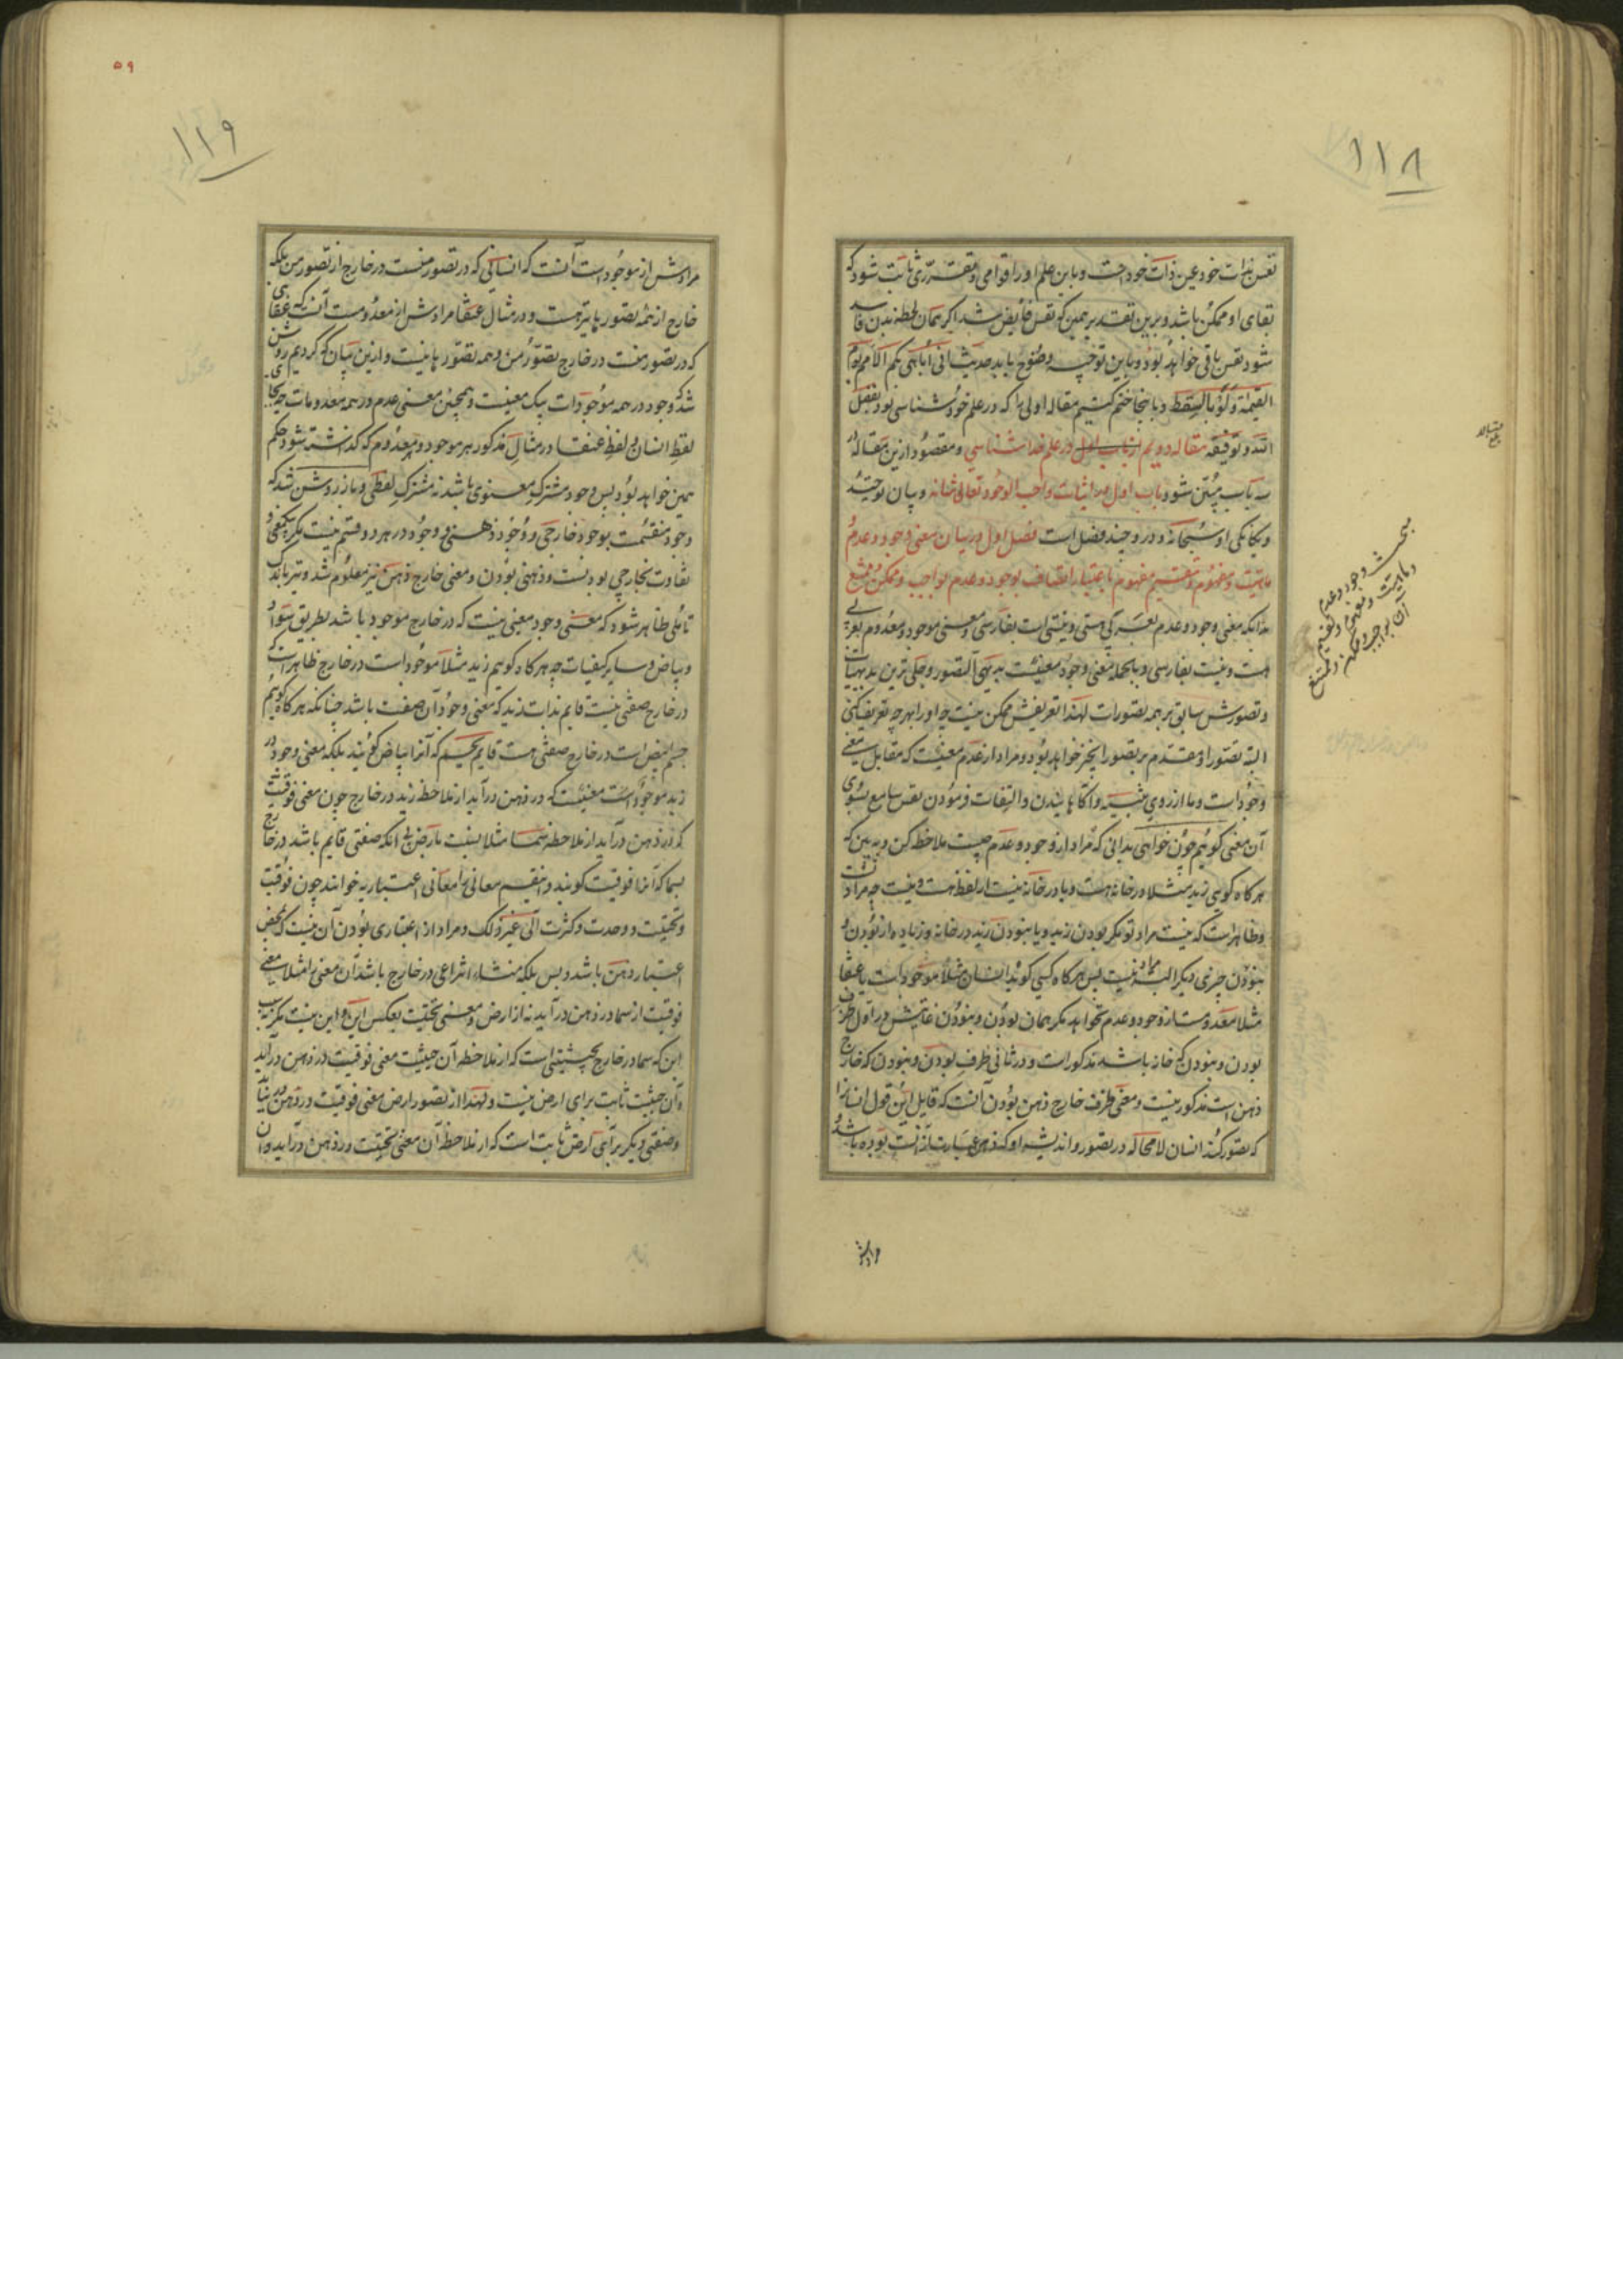 ۱۱۸
نفس بذات خود عین ذات خود است و باین علم او را قوامی و تقرری ثابت شود که
بقای او ممکن باشد و برین تقدیر همین که نفس فایض شد اگر همان لحظه بدن فاسد
شود نفس باقی خواهد بود و باین توجیه وضوح یابد حدیث انی اباهی بکم الامم یوم
القیمة و لو بالسقط و باینجا ختم کنیم مقاله اولی را که در علم خودشناسی بود بفضل
الله و توفیقه مقاله دویم از باب اول در علم خداشناسی و مقصود ازین مقاله در
سه باب مبین شود باب اول در اثبات واجب الوجود تعالی شانه و بیان توحید
و یگانگی او سبحانه و درو چند فصل است فصل اول در بیان معنی وجود و عدم و
ماهیت و مفهوم و تقسیم مفهوم باعتبار اتصاف بوجود و عدم بواجب و ممکن و ممتنع
بدانکه معنی وجود و عدم بعربی هستی و نیستی است بفارسی و معنی موجود و معدوم بعربی
هست و نیست بفارسی و بالجمله معنی وجود معنیست بدیهی التصور و جلی ترین بدیهیات
و تصورش سابق بر همه تصورات لهذا تعریفش ممکن نیست چه او را بهر چه تعریف کنی
البته تصور او مقدم بر تصور آنچیز خواهد بود و مراد از عدم معنیست که مقابل معنی
وجود است و ما از روی تنبیه و آگاهانیدن و التفات فرمودن نفس سامع بسوی
آن معنی گوئیم چون خواهی بدانی که مراد از وجود و عدم چیست ملاحظه کن و به بین که
هر گاه گویی زید مثلا در خانه هست و یا در خانه نیست از لفظ هست و نیست چه مراد تست
و ظاهر است که نیست مراد تو مگر بودن زید و یا نبودن زید در خانه و زیاده از بودن و
نبودن چیزی دیگر البته مراد نیست پس هر گاه کسی گوید انسان مثلا موجود است یا عنقا
مثلا معدومست از وجود و عدم نخواهد مگر همان بودن و نبودن غایتش در اول ظرف
بودن و نبودن که خانه باشد مذکور است و در ثانی ظرف بودن و نبودن که خارج
ذهن است مذکور نیست و معنی ظرف خارج ذهن بودن آنست که قایل این قول انسانرا
که تصور کند انسان لا محاله در تصور و اندیشه او که ذهن عبارت از آنست بوده باشد و
بحث وجود و عدم
و ماهیت و مفهوم و تقسیم
آن بواجب و ممکن و ممتنع
۵۹
۱۱۹
مرادش از موجود است آنست که انسانی که در تصور منست در خارج از تصور من بلکه
خارج از همه تصورها نیز هست و در مثال عنقا مرادش از معدومست آن که عنقای
که در تصور منست در خارج تصور من و همه تصورها نیست و ازین بیان که کردیم روشن
شد که وجود در همه موجودات بیک معنیست و همچنین معنی عدم در همه معدومات چه بجای
لفظ انسان و لفظ عنقا در مثال مذکور هر موجود و معدوم که گذاشته شود حکم
همین خواهد بود پس وجود مشترک معنوی باشد نه مشترک لفظی و باز روشن شد که
وجود منقسمست بوجود خارجی و وجود ذهنی و وجود در هر دو قسم نیست مگر بیکمعنی و
تفاوت بخارجی بودنست و ذهنی بودن و معنی خارج ذهن نیز معلوم شد و نیز باندک
تاملی ظاهر شود که معنی وجود معنی نیست که در خارج موجود باشد بطریق سواد
و بیاض و سایر کیفیات چه هر گاه گوییم زید مثلا موجود است در خارج ظاهر است که
در خارج صفتی نیست قایم بذات زید که معنی وجود آن صفت باشد چنانکه هر گاه گوییم
جسم ابیض است در خارج صفتی هست قایم بجسم که آنرا بیاض گویند بلکه معنی وجود در
زید موجود است معنیست که در ذهن درآید از ملاحظه زید در خارج چون معنی فوقیت
که در ذهن درآید از ملاحظه سما مثلا بنسبت بارض بی آنکه صفتی قایم باشد در خارج
بسما که آنرا فوقیت گویند و اینقسم معانی را معانی اعتباریه خوانند چون فوقیت
و تحتیت و وحدت و کثرت الی غیر ذلک و مراد از اعتباری بودن آن نیست که بمحض
اعتبار ذهن باشد و بس بلکه منشاء انتزاعی در خارج باشد آن معنی را مثلا معنی
فوقیت از سما در ذهن درآید نه از ارض و معنی تحتیت بعکس این و این نیست مگر بسبب
این که سما در خارج بحیثیتی است که از ملاحظه آن حیثیت معنی فوقیت در ذهن درآید
و آن حیثیت ثابت برای ارض نیست و لهذا از تصور ارض معنی فوقیت در ذهن در نیاید
و صفتی دیگر برای ارض ثابت است که از ملاحظه آن معنی تحتیت در ذهن درآید و آن